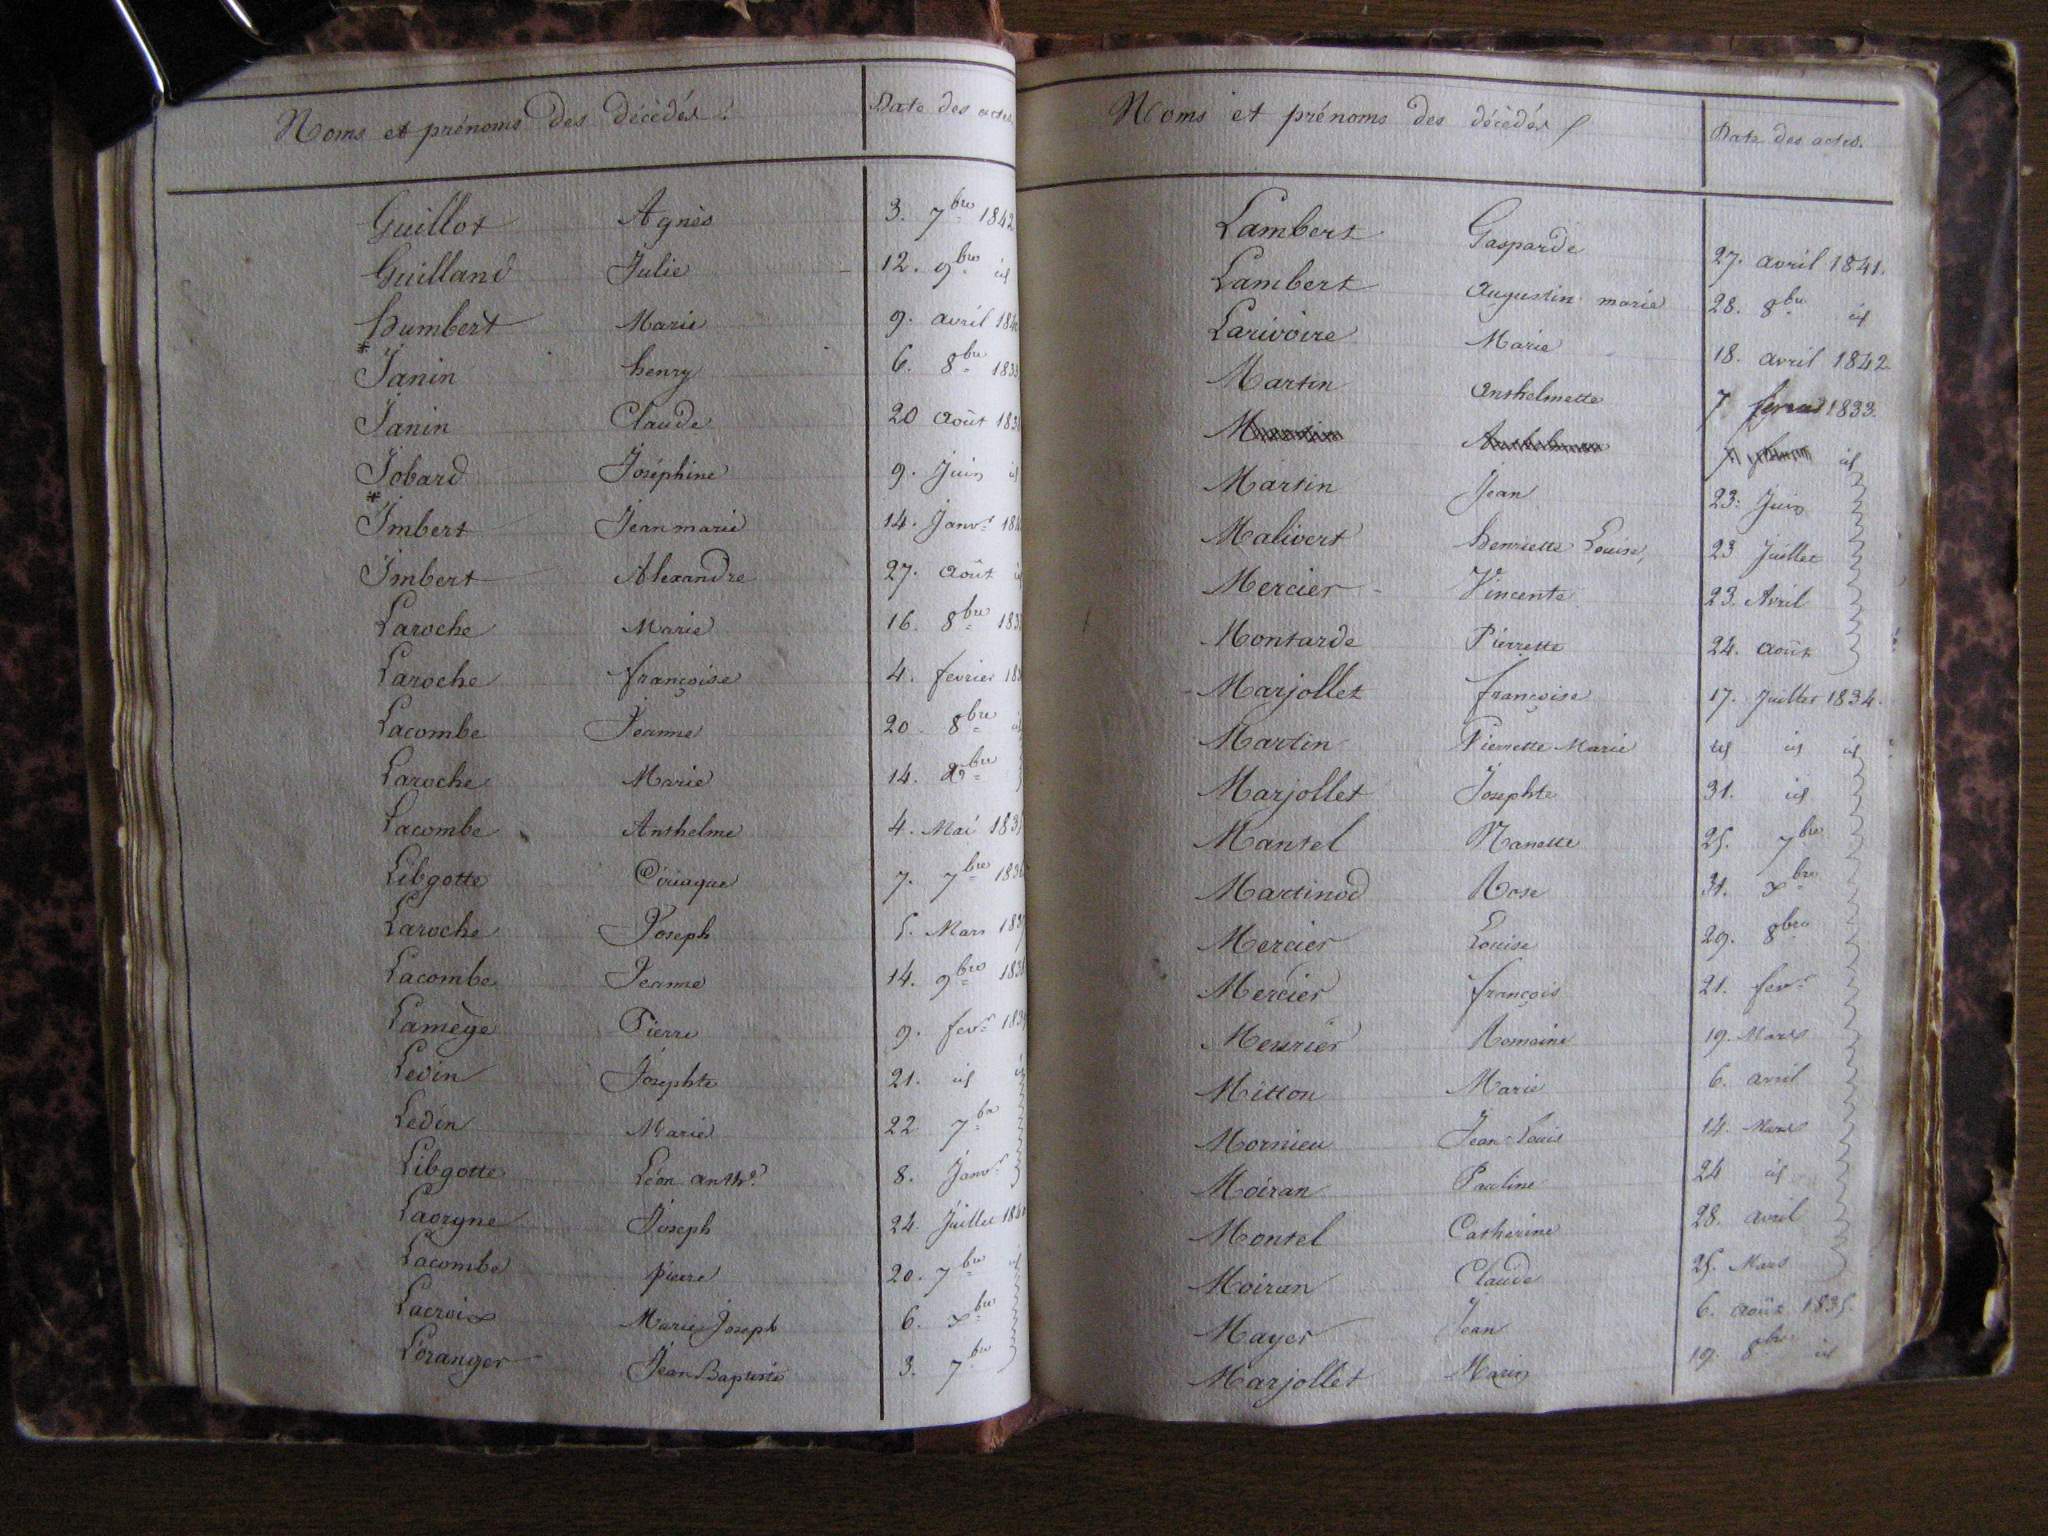 Noms et prénoms des décédés Date des actes.
Guillot Agnès 3. 7bre 1842
Guilland Julie 12. 9bre id
humbert Marie 9. avril
Janin henry 6. 8bre 183
Janin Claude 20 août 183
Jobard Joséphine 9. Juin id
Imbert Jean marie 14. Janvr
Imbert Alexandre 27. août id
Laroche Marie 16. 8bre 183
Laroche françoise 4. fevrier
Lacombe Jeanne 20. 8bre id
Laroche Marie 14.
Lacombe Anthelme 4. Mai 183
Libgotte Ciriaque 7. 7bre 1836
Laroche Joseph 5. Mars 1837
Lacombe Jeanne 14. 9bre 1838
Lamège Pierre 9. fevr 1839
Levin Josephte 21. id id
Ledin Marie 22 7bre
Libgotte Léon 8. Janvr
Joseph 24 Juillet 184
Lacombe pierre 20. 7bre id
Lacroix Marie Joseph 6. xbre
Loranger Jean Baptiste 3. 7bre
Noms et prénoms des décédés Date des actes.
Lambert Gasparde 27. avril 1841.
Lambert augustin marie 28. 8bre id
Larivoire Marie 18. avril 1842
Martin anthelmette 7 1833.
id
Martin Jean 23. Juin
Malivert henriette Louise, 23 Juillet
Mercier Vincente 23. Avril
Montarde Pierrette 24. août
Marjollet françoise 17. Juillet 1834.
Martin Pierrette Marie id id id
Marjollet Josephte 31. id
Mantel Nanette 25. 7bre
Martinod Rose 31. xbre
Mercier Louise 29. 8bre
Mercier françois 21. fevr
Meurier Romaine 19. Mars
Mitton Marie 6. avril
Mornieu Jean-Louis 14. Mars
Moiran Pauline 24 id
Montel Catherine 28. avril
Moiran Claude 25. Mars
Mayer Jean 6. août 1835.
Marjollet Marie 19. 8bre id